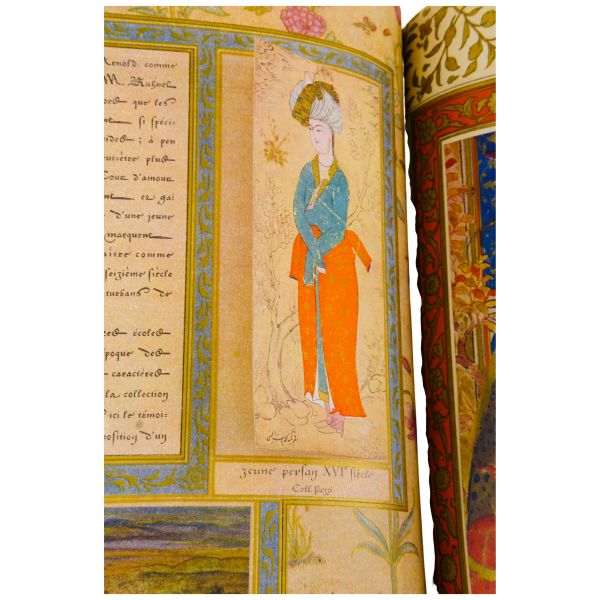 Arnold comme
M. Kühnel
que les
si spéci-
; à peu
plus
Cour d'amour
et gai
d'une jeune
marquent
comme
seizième siècle
turbans de
écoles
des
caractères
la collection
ici le témoi-
position d'un
jeune persan XVIe siècle
Coll. Pozzi